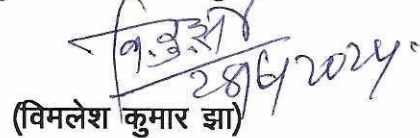 वि.कु.झा
28/6/2024
(विमलेश कुमार झा)